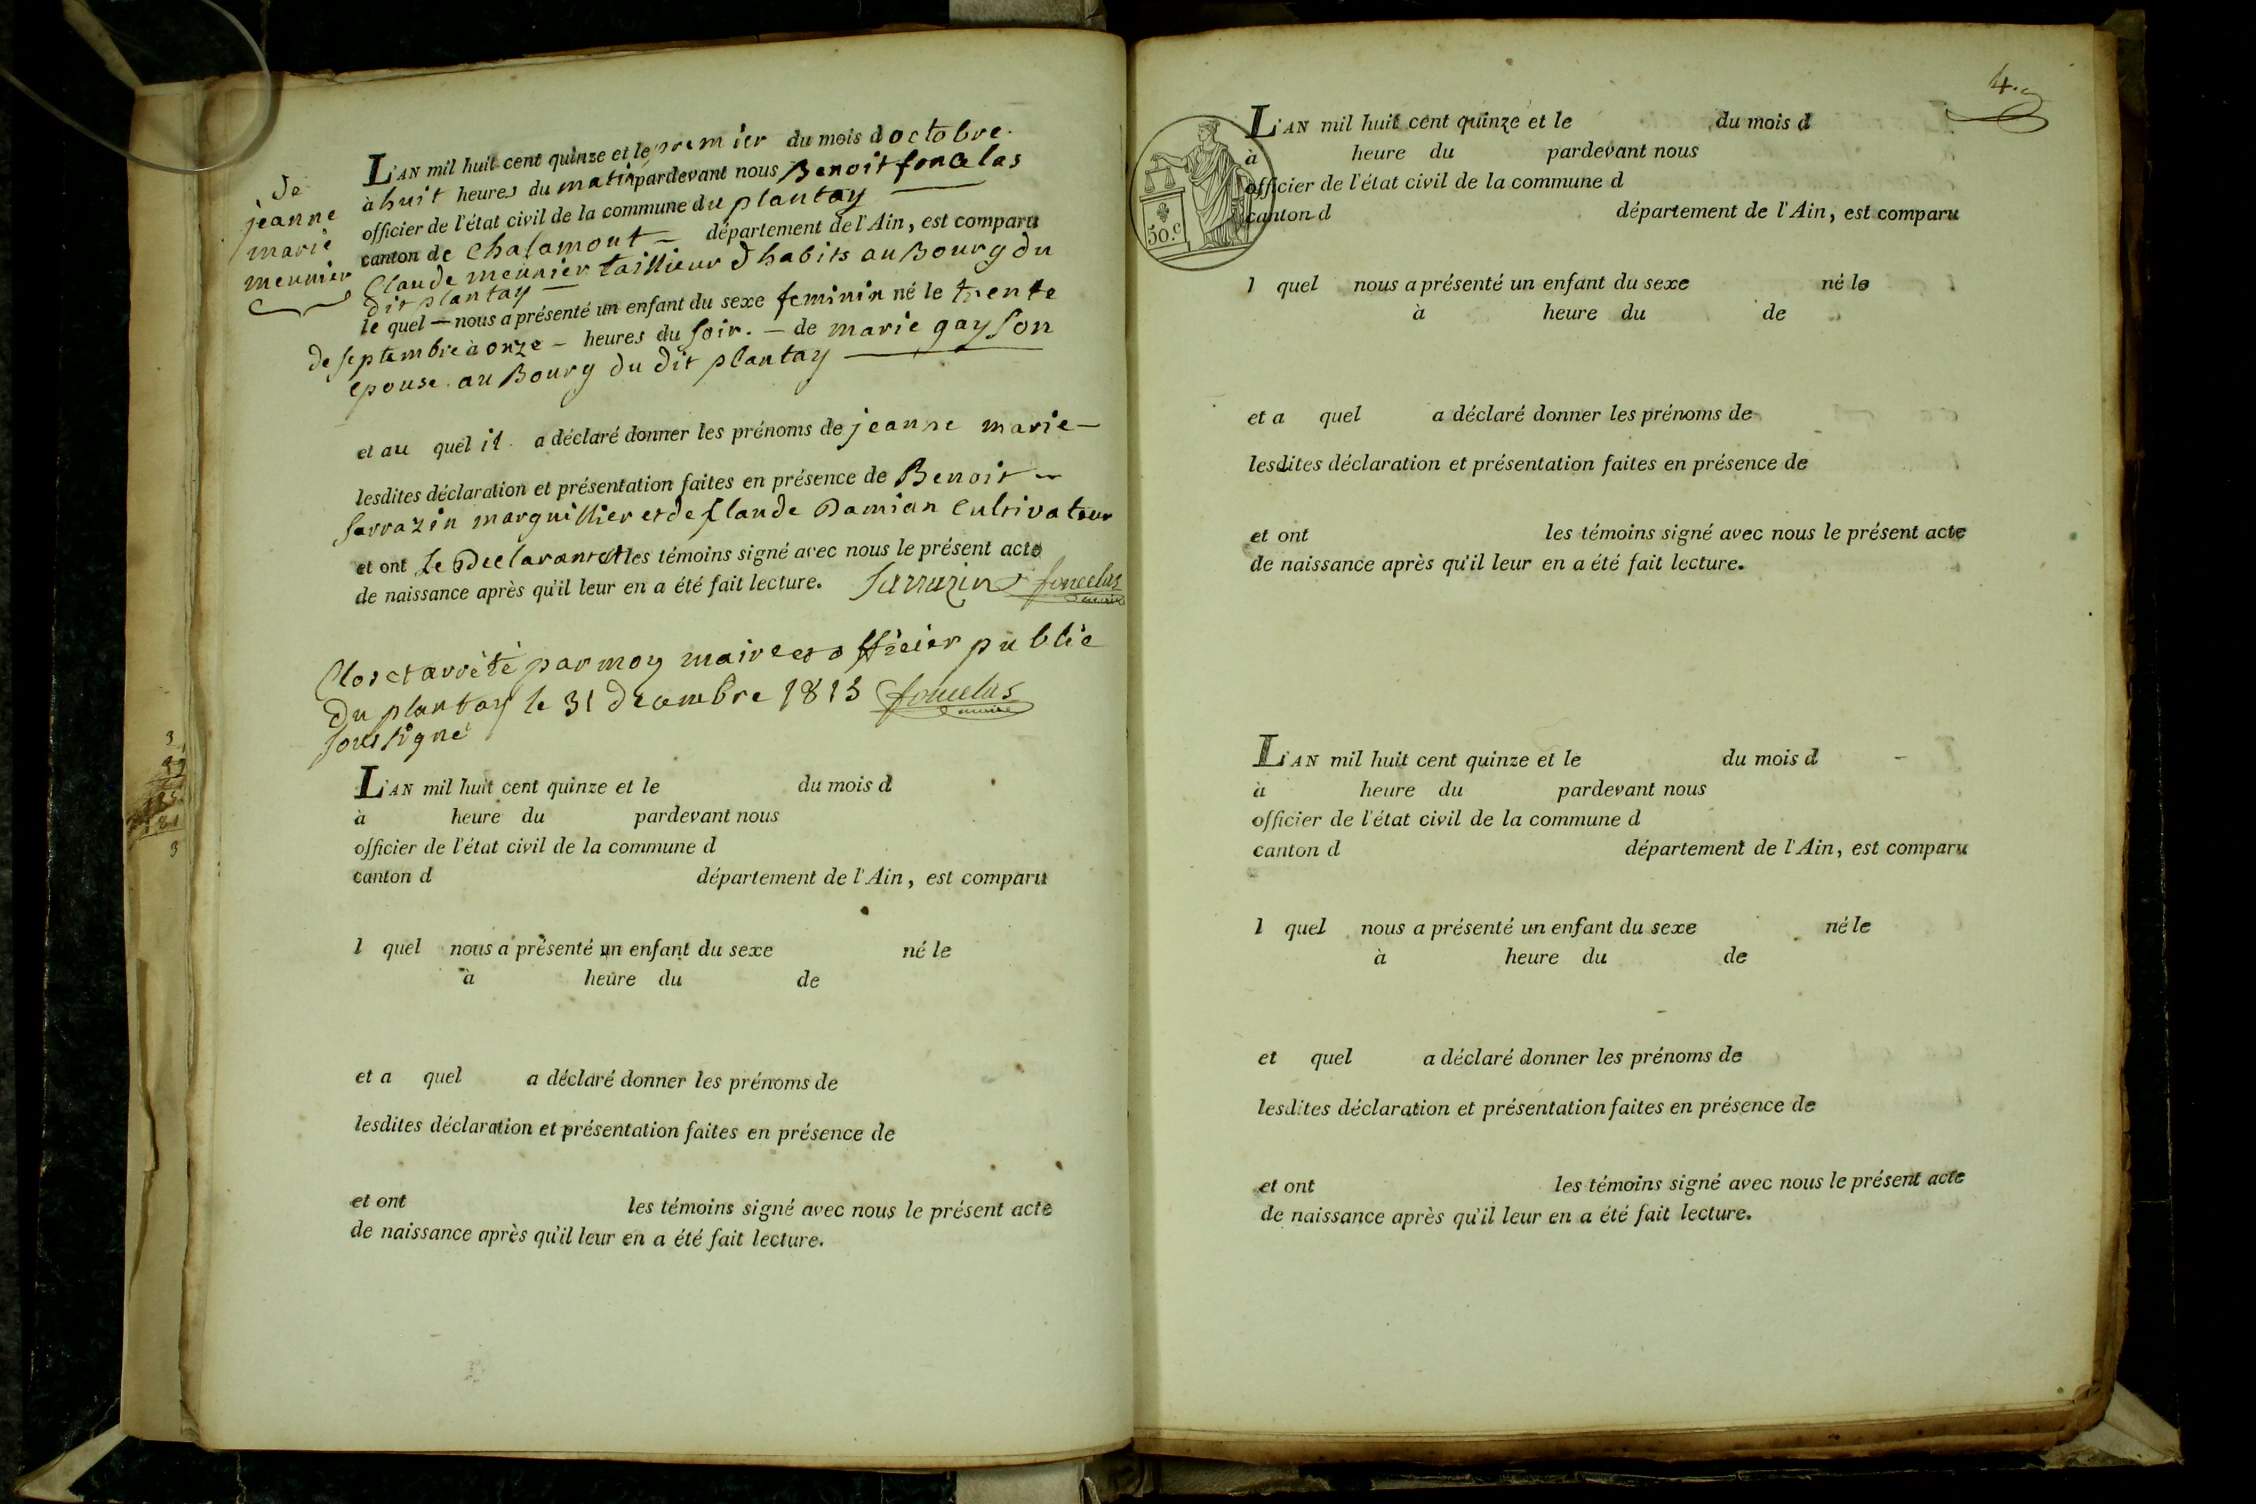 de
jeanne
marie
meunier
L'AN mil huit cent quinze et le premier du mois d octobre.
à huit heures du matin pardevant nous Benoit fonclas
officier de l'état civil de la commune du plantay
canton de Chalamont — département de l'Ain, est comparu
Claude meunier taillieur d habits au Bourg du
dit plantay —
le quel — nous a présenté un enfant du sexe feminin né le trente
de septembre à onze — heures du soir. — de marie gay son
epouse. au Bourg du dit plantay
et au quel il a déclaré donner les prénoms de jeanne marie —
lesdites déclaration et présentation faites en présence de Benoit —
sarrazin marguillier et de Claude Damian Cultivateur
et ont Le Declarant et les témoins signé avec nous le présent acte
de naissance après qu'il leur en a été fait lecture. Sarrazin fonclas
maire
Clos et arrêté par moy maire et officier public
Du plantay le 31 decembre 1815 fonclas
maire
soussigné
L'AN mil huit cent quinze et le du mois d
à heure du pardevant nous
officier de l'état civil de la commune d
canton d département de l'Ain, est comparu
l quel nous a présenté un enfant du sexe né le
à heure du de
et a quel a déclaré donner les prénoms de
lesdites déclaration et présentation faites en présence de
et ont les témoins signé avec nous le présent acte
de naissance après qu'il leur en a été fait lecture.
4.
50.c
L'AN mil huit cent quinze et le du mois d
à heure du pardevant nous
officier de l'état civil de la commune d
canton d département de l'Ain, est comparu
l quel nous a présenté un enfant du sexe né le
à heure du de
et a quel a déclaré donner les prénoms de
lesdites déclaration et présentation faites en présence de
et ont les témoins signé avec nous le présent acte
de naissance après qu'il leur en a été fait lecture.
L'AN mil huit cent quinze et le du mois d
à heure du pardevant nous
officier de l'état civil de la commune d
canton d département de l'Ain, est comparu
l quel nous a présenté un enfant du sexe né le
à heure du de
et quel a déclaré donner les prénoms de
lesdites déclaration et présentation faites en présence de
et ont les témoins signé avec nous le présent acte
de naissance après qu'il leur en a été fait lecture.